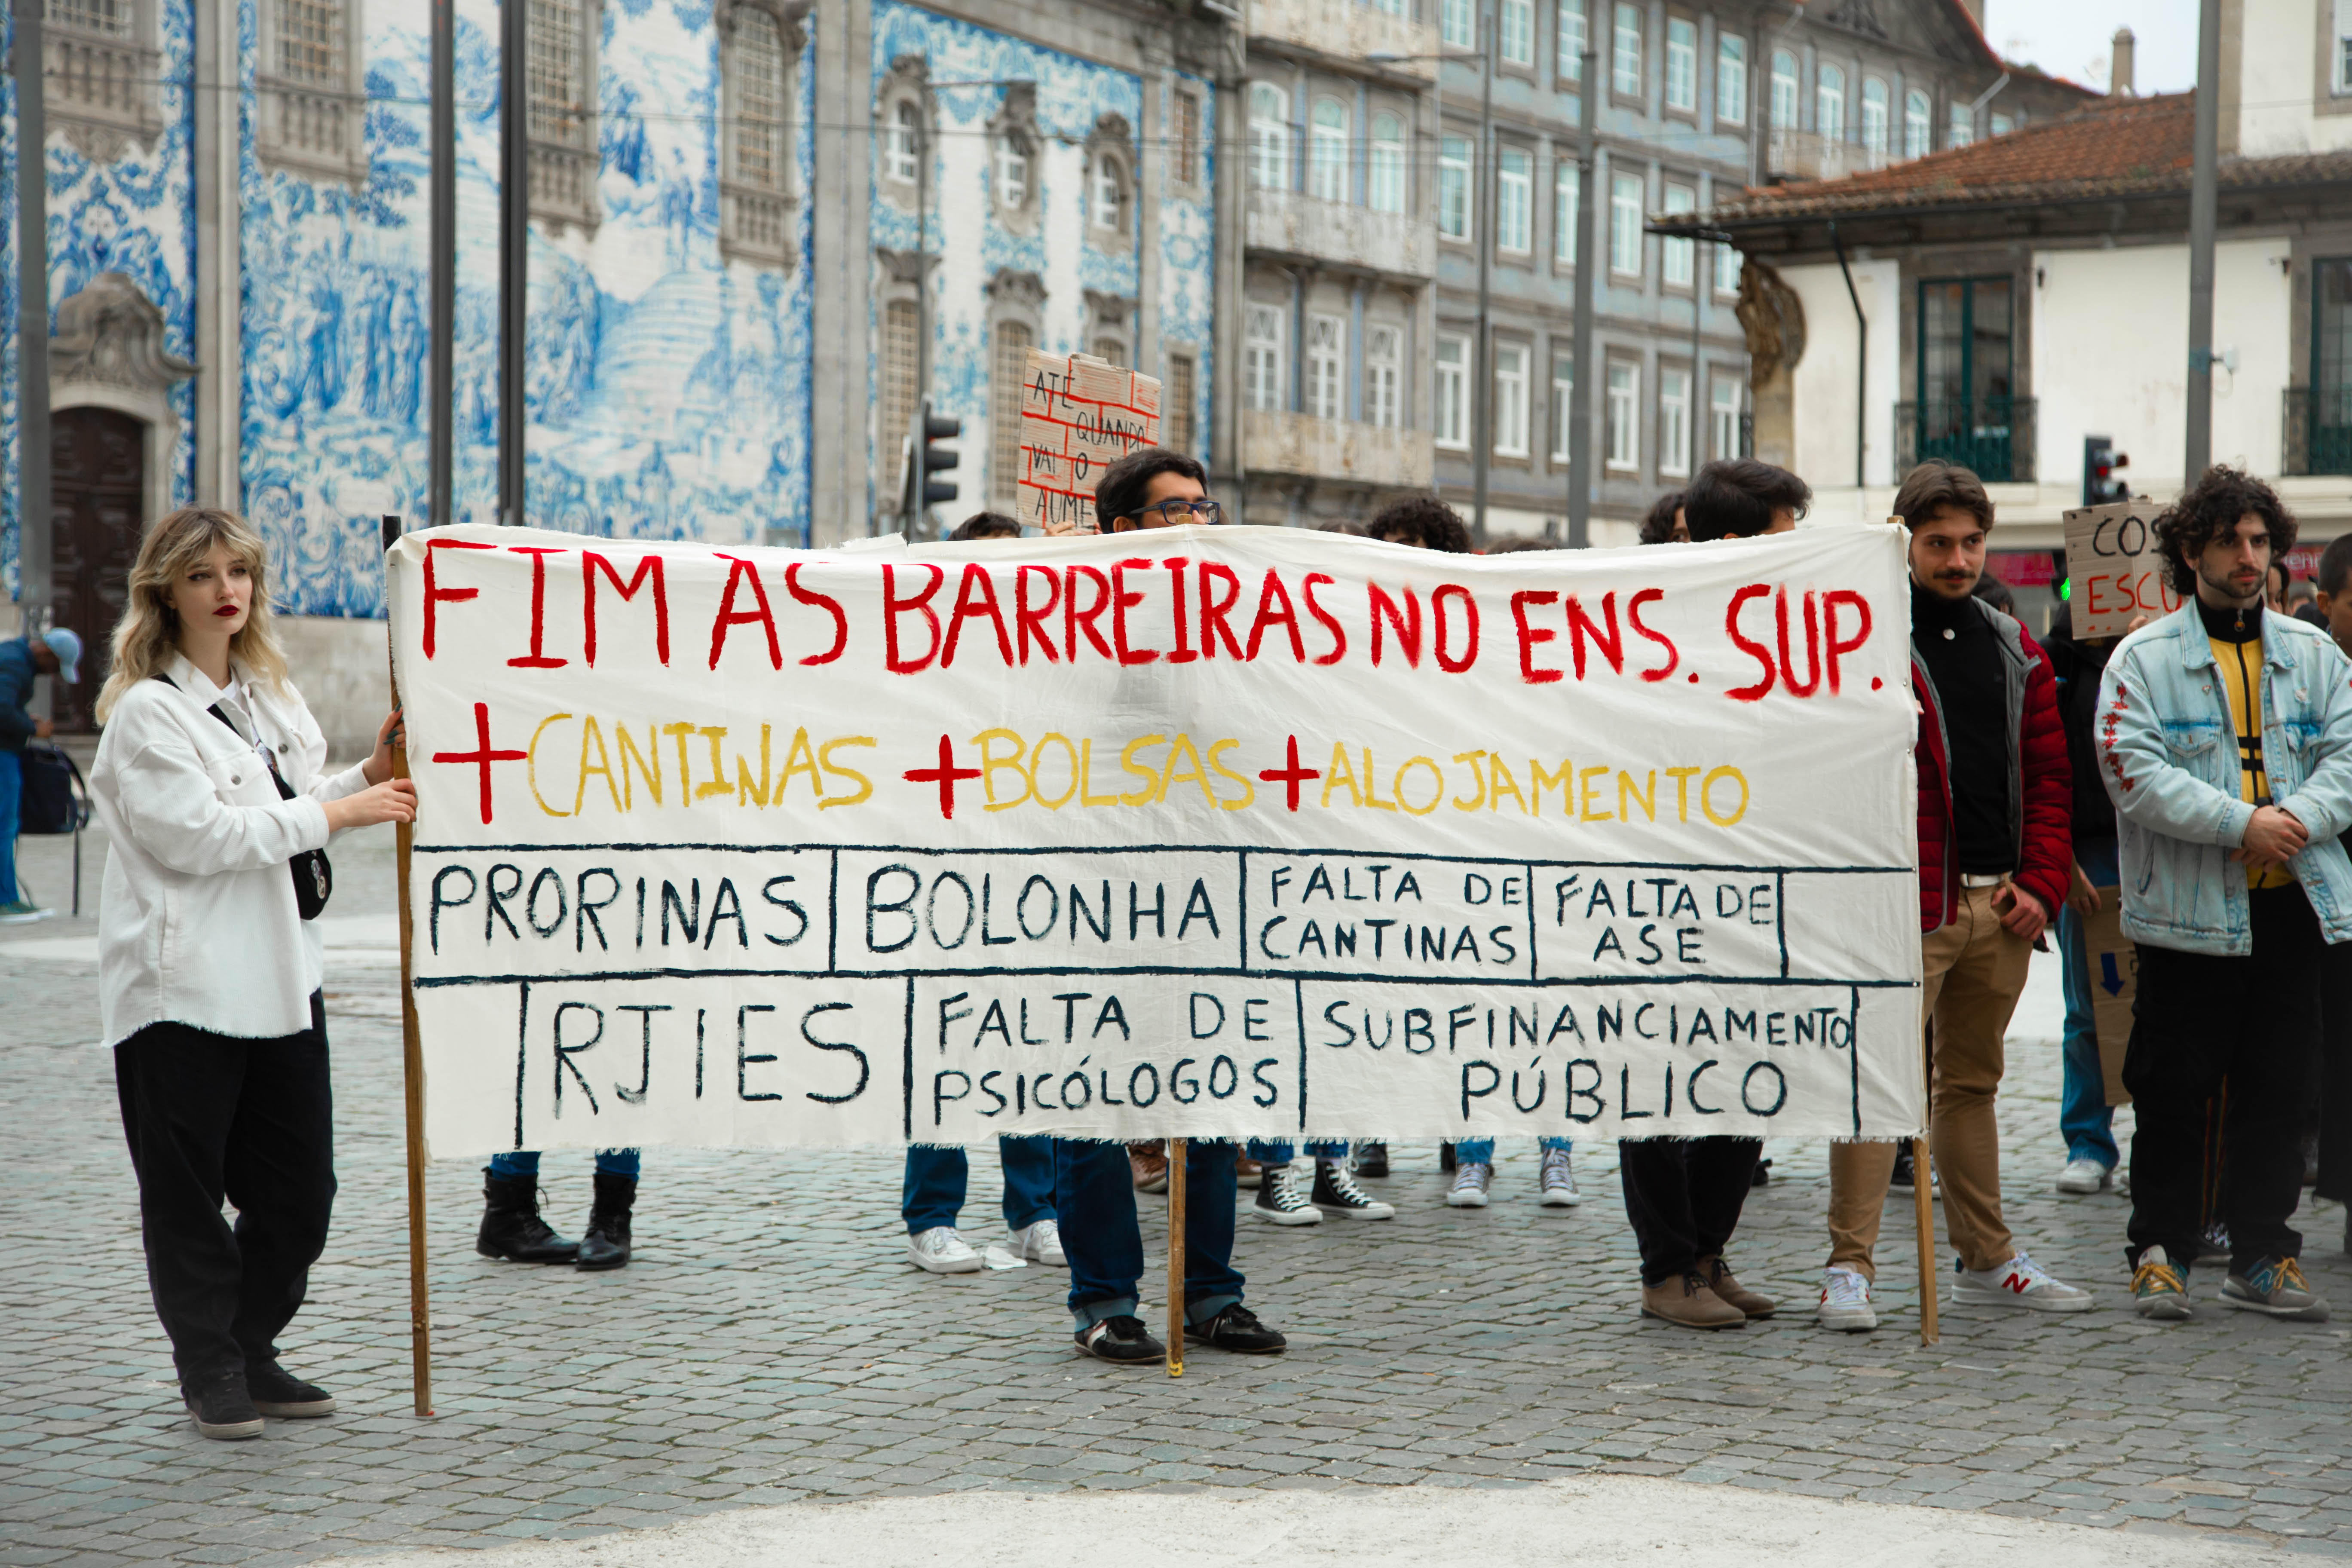 ATÉ
QUANDO
VAI O
FIM ÀS BARREIRAS NO ENS. SUP.
+CANTINAS +BOLSAS +ALOJAMENTO
PRORINAS
BOLONHA
FALTA DE
CANTINAS
FALTA DE
ASE
RJIES
FALTA DE
PSICÓLOGOS
SUBFINANCIAMENTO
PÚBLICO
N